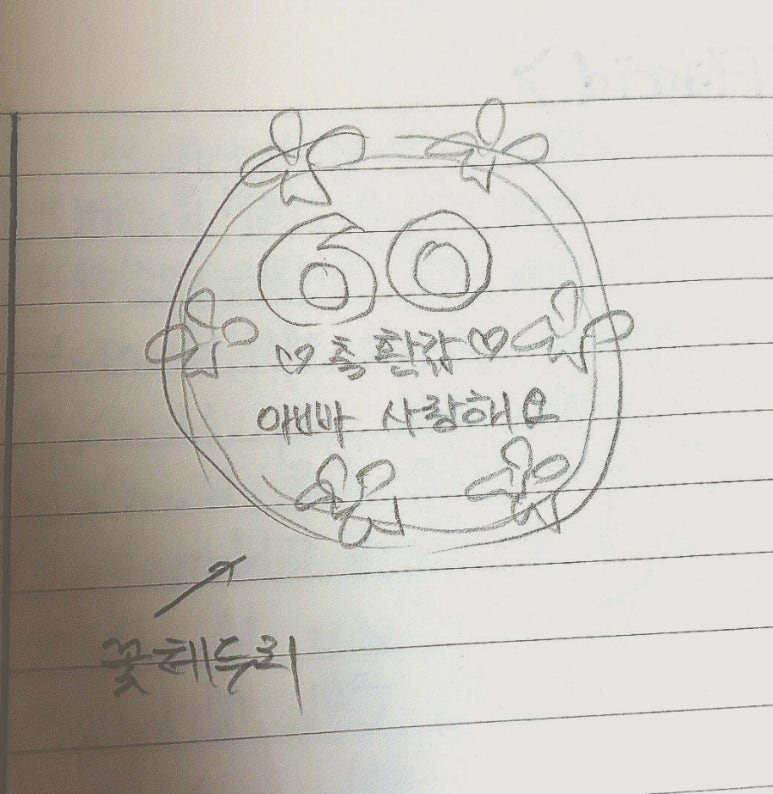 60
♡축 환갑♡
아빠 사랑해요
꽃테두리